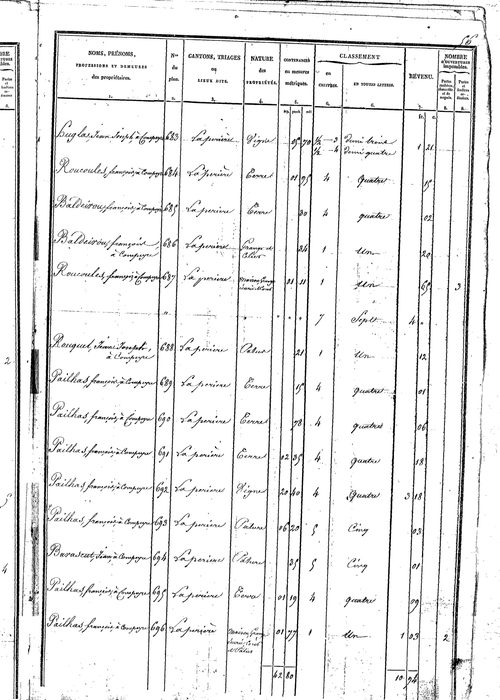 NOMS, PRÉNOMS, PROFESSIONS ET DEMEURES des propriétaires. | Nos du plan. | CANTONS, TRIAGES ou LIEUX DITS. | NATURE des PROPRIÉTÉS. | CONTENANCES en mesures métriques. | CLASSEMENT en CHIFFRES. | en TOUTES LETTRES. | REVENU. | NOMBRE D'OUVERTURES imposables.
1. 2. 3. 4. 5. 6. 7. 8.
Jean Joseph, à Compeyre 683 La periere Vigne 05 70 1/2 3 demi trois 1 21
1/2 4 demi quatre
Roucoules, françois, à Compeyre 684 La periere Terre 01 95 4 Quatre 15
Baldeirou, françois, à Compeyre 685 La periere Terre 30 4 quatre 02
Baldeirou, françois, à Compeyre 686 La periere Grange et 34 1 Un 20
Roucoules, françois, à Compeyre 687 La periere 01 11 1 Un 65 3
7 Sept 4
Rouquet, Jean Joseph, à Compeyre 688 La periere Patus 21 1 Un 12
Pailhas, françois, à Compeyre 689 La periere Terre 15 4 quatre 01
Pailhas, françois, à Compeyre 690 La periere Terre 78 4 quatre 06
Pailhas, françois, à Compeyre 691 La periere Terre 02 35 4 Quatre 18
Pailhas, françois, à Compeyre 692 La periere Vigne 20 40 4 Quatre 3 18
Pailhas, françois, à Compeyre 693 La periere Pature 06 20 5 Cinq 03
Jean, à Compeyre 694 La periere Pature 35 5 Cinq 01
Pailhas, françois, à Compeyre 695 La periere Terre 01 19 4 quatre 09
Pailhas, françois, à Compeyre 696 La periere 01 77 1 Un 1 03 2
42 80 10 94